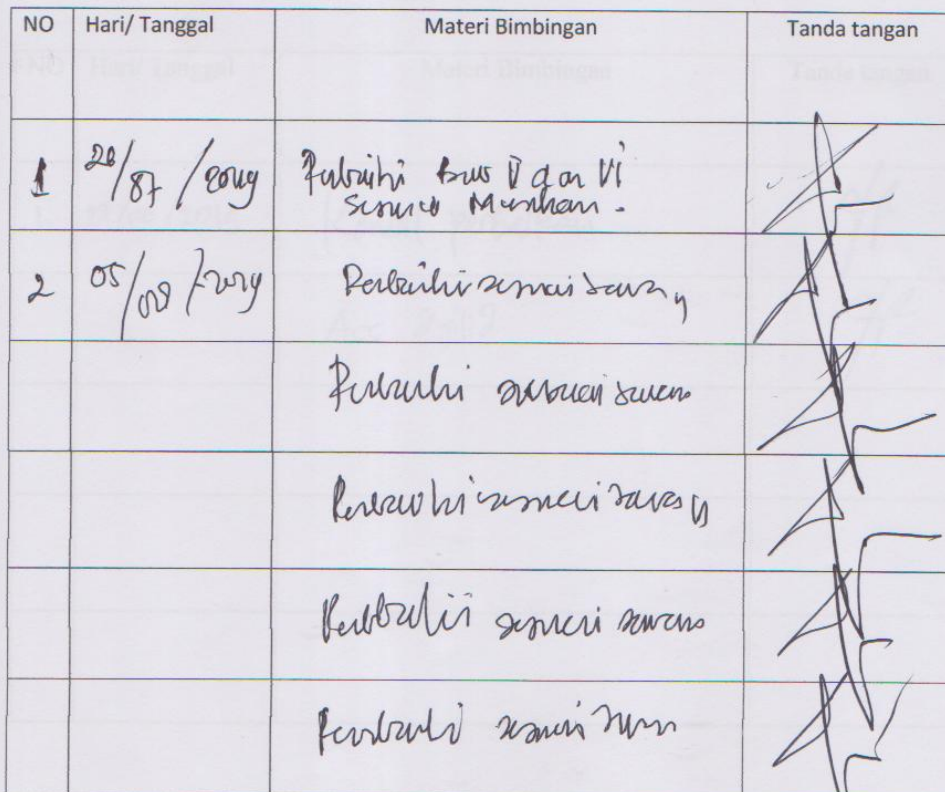 NO Hari/ Tanggal Materi Bimbingan Tanda tangan
1 Perbaiki Bab V dan VI
2 05/08/2019 Perbaiki sesuai saran
Perbaiki sesuai saran
Perbaiki sesuai saran
Perbaiki sesuai saran
Perbaiki sesuai saran